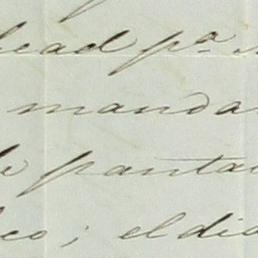 lead pª
manda
de panta
co; el dia